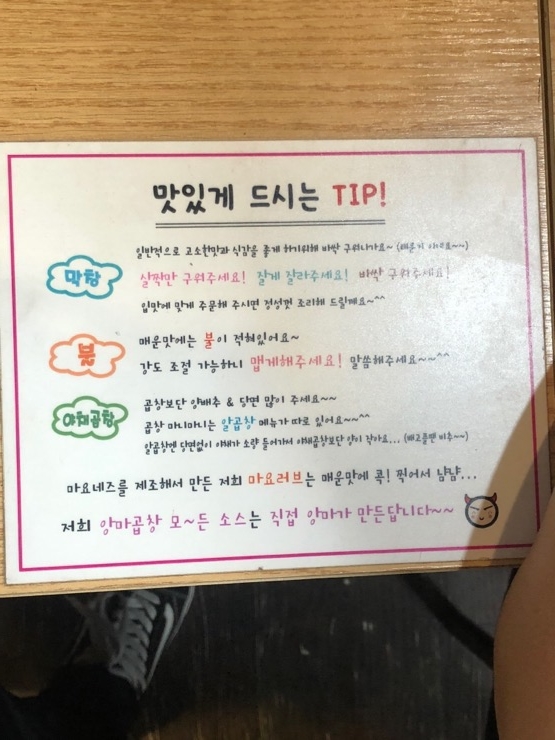 맛있게 드시는 TIP!
일반적으로 고소한맛과 식감을 좋게 하기위해 바싹 구워나가요~
막창
살짝만 구워주세요! 잘게 잘라주세요! 바싹 구워주세요!
입맛에 맞게 주문해 주시면 정성껏 조리해 드릴께요~^^
불
매운맛에는 불이 적혀있어요~
강도 조절 가능하니 맵게해주세요! 말씀해주세요~~^^
야채곱창
곱창보단 양배추 & 당면 많이 주세요~~
곱창 마니마니는 알곱창 메뉴가 따로 있어요~~^^
알곱창엔 당면없이 야채가 소량 들어가서 야채곱창보단 양이 작아요... (배고플땐 비추~~)
마요네즈를 제조해서 만든 저희 마요러브는 매운맛에 콕! 찍어서 냠냠...
저희 양마곱창 모~든 소스는 직접 양마가 만든답니다~~